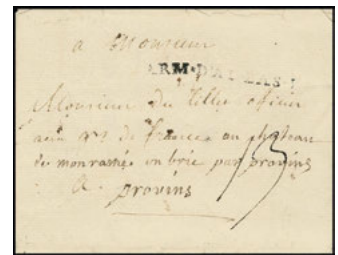 a Monsieur
ARM·D'ALLAS
Monsieur Du tillet officier
aux de france au chateau
de monrashé en brie par provins
a provins
13